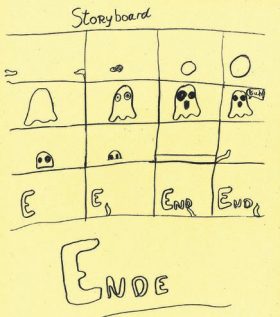 Storyboard
Buh!
E E END END
ENDE